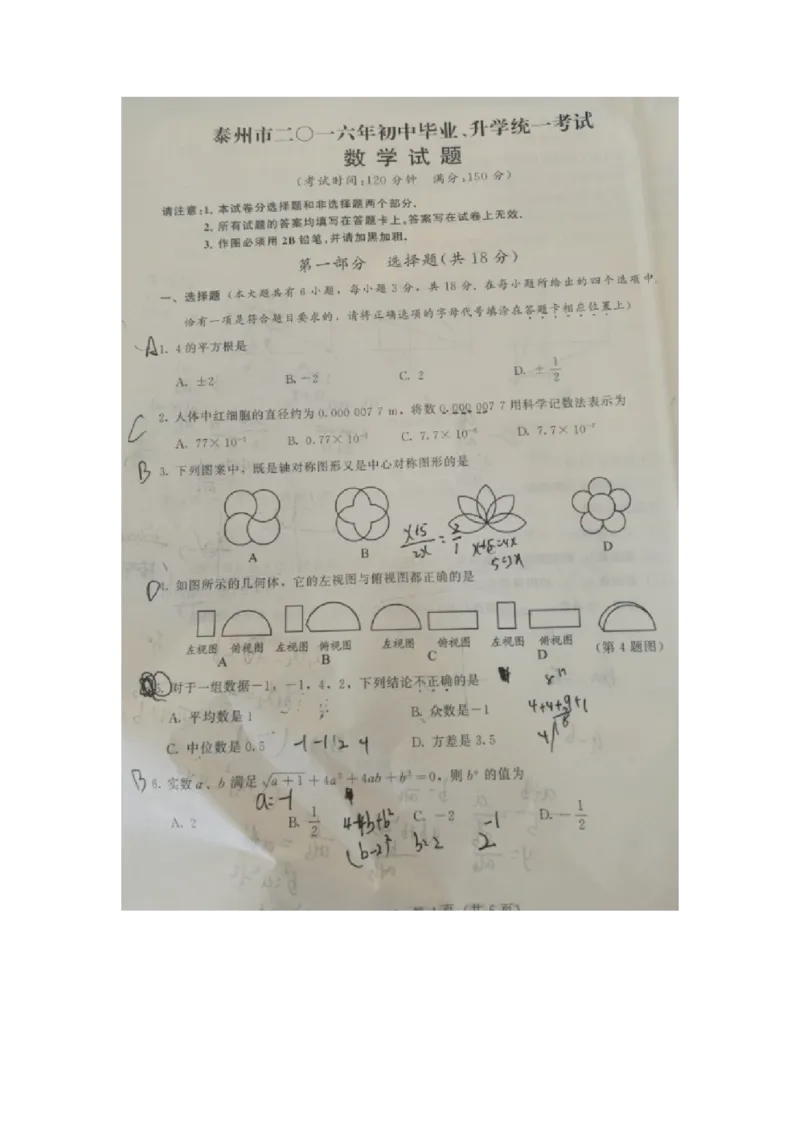 泰州市二〇一六年初中毕业、升学统一考试
数学试题
(考试时间:120分钟 满分:150分)
请注意:1. 本试卷分选择题和非选择题两个部分.
2. 所有试题的答案均填写在答题卡上,答案写在试卷上无效.
3. 作图必须用2B铅笔,并请加黑加粗.
第一部分 选择题(共18分)
一、选择题(本大题共有6小题,每小题3分,共18分.在每小题所给出的四个选项中,
恰有一项是符合题目要求的,请将正确选项的字母代号填涂在答题卡相应位置上)
A 1. 4的平方根是
A. ±2 B. -2 C. 2 D. ±1/2
C 2. 人体中红细胞的直径约为0.000 007 7 m,将数0.000 007 7用科学记数法表示为
A. 77×10 B. 0.77×10 C. 7.7×10⁻⁶ D. 7.7×10⁻⁷
B 3. 下列图案中,既是轴对称图形又是中心对称图形的是
x+5/2x = 2/1 x+5=4x
5=3x
A B D
D 4. 如图所示的几何体,它的左视图与俯视图都正确的是
左视图 俯视图 左视图 俯视图 左视图 俯视图 左视图 俯视图 (第4题图)
A B C D
5. 对于一组数据-1,-1,4,2,下列结论不正确的是
A. 平均数是1 B. 众数是-1 4+4+9+1
C. 中位数是0.5 -1 -1 2 4 D. 方差是3.5 4 18
B 6. 实数a、b满足√a+1+4a²+4ab+b²=0,则bᵃ的值为
a=-1
A. 2 B. 1/2 4-4b+b² C. -2 -1 D. -1/2
(b-2)² b=2 2